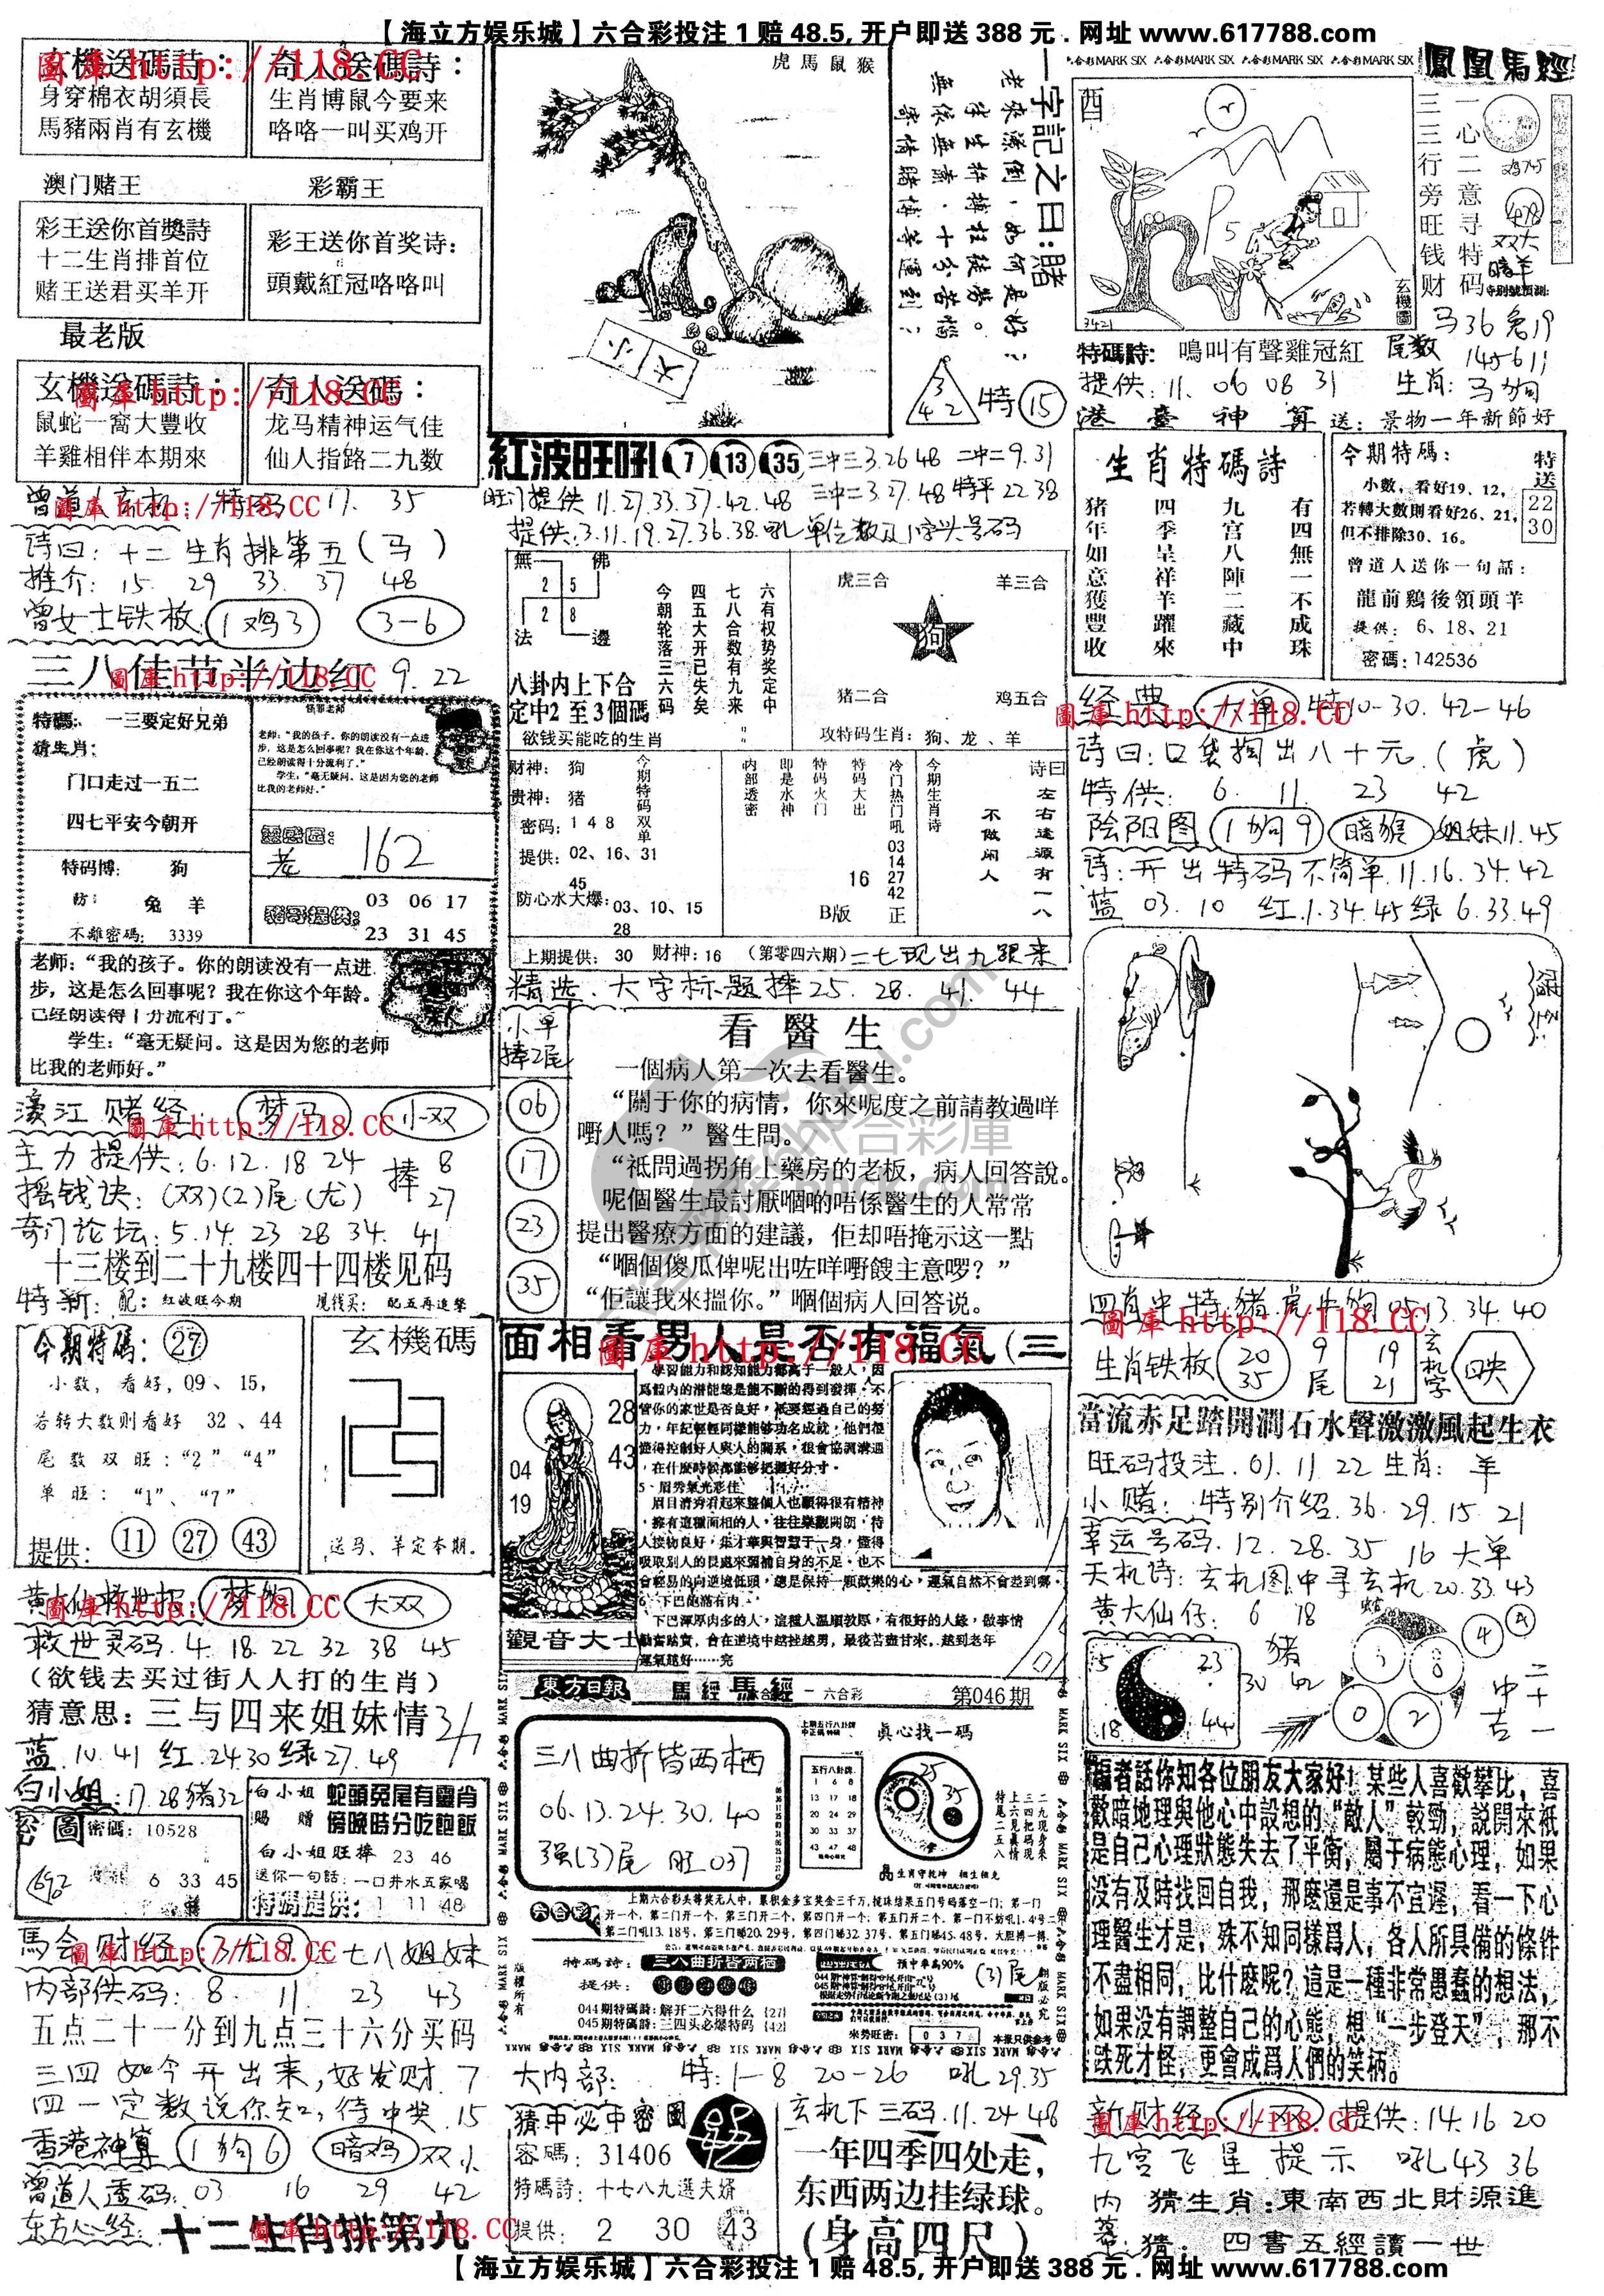 【海立方娱乐城】六合彩投注1赔48.5,开户即送388元.网址www.617788.com
玄機送碼詩：
身穿棉衣胡須長
馬豬兩肖有玄機
奇人送碼詩：
生肖博鼠今要来
咯咯一叫买鸡开
圖庫 http://118.CC
澳门赌王
彩霸王
彩王送你首獎詩
十二生肖排首位
赌王送君买羊开
彩王送你首奖诗：
頭戴紅冠咯咯叫
最老版
玄機送碼詩：
鼠蛇一窩大豐收
羊雞相伴本期來
奇人送碼：
龙马精神运气佳
仙人指路二九数
圖庫 http://118.CC
17. 35
诗曰：十二生肖排第五(马)
推介：15. 29 33. 37 48
曾女士铁板 1鸡3 3-6
三八佳节半边红 9.22
圖庫 http://118.CC
特碼：一三要定好兄弟
猜生肖：
门口走过一五二
四七平安今朝开
特码博： 狗
防： 兔 羊
不離密碼： 3339
162
03 06 17
23 31 45
老师：“我的孩子。你的朗读没有一点进
步，这是怎么回事呢？我在你这个年龄。
已经朗读得十分流利了。”
学生：“毫无疑问。这是因为您的老师
比我的老师好。”
濠江赌经： 梦马 小双
圖庫 http://118.CC
主力提供：6.12.18.24 捧 8
摇钱诀：(双)(2)尾(龙) 27
奇门论坛：5.14.23 28 34. 41
十三楼到二十九楼四十四楼见码
特新：配：红波旺今期 现钱买：配五再追擊
今期特碼：27
小数，看好，09、15，
若转大数则看好 32、44
尾数双旺：“2” “4”
单旺：“1”、“7”
提供： 11 27 43
玄機碼
送马、羊定本期。
黄大仙救世报 梦狗 大双
圖庫 http://118.CC
救世灵码.4.18.22 32 38 45
(欲钱去买过街人人打的生肖)
猜意思：三与四来姐妹情
蓝.10.41 红.24 30 绿 27.49
白小姐：17.28猪32
密圖 密碼：10528
6 33 45
白小姐賜贈
蛇頭兔尾有靈肖
傍晚時分吃飽飯
白小姐旺捧 23 46
送你一句話：一口井水五家喝
特碼提供： 1 11 48
馬会财经 3龙9 七八姐妹
圖庫 http://118.CC
内部供码：8. 11 23 43
五点二十一分到九点三十六分买码
三四如今开出来，好发财.7
四一定数说你知，待中奖.15
香港神算 1狗6 暗鸡 双小
曾道人透码：03 16 29 42
东方心经：十二生肖排第九
圖庫 http://118.CC
虎馬鼠猴
大小
一字記之曰：賭
老來潦倒，如何是好？
半生拚搏枉徒勞。
無依無靠，十分苦惱
寄情賭博等運到？
3 4 2 特 15
紅波旺吼 7 13 35 三中三3.26 48 二中二9.31
旺门提供 11.27.33.37.42.48 三中二3.27.48 特平22 38
提供：3.11.19.27.36.38.吼 单位数及1字头号码
無 佛
2 5
2 8
法 邊
八卦内上下合
定中2至3個碼
欲钱买能吃的生肖
六有权势奖定中
七八合数有九来
四五大开已失矣
今朝轮落三六码
虎三合 羊三合
狗
猪二合 鸡五合
攻特码生肖：狗、龙、羊
财神： 狗
贵神： 猪
密码：1 4 8
提供：02、16、31
45
防心水大爆：03、10、15
28
今期特码双单
内部透密
即是水神
特码火门
特码大出
16
B版
冷门热门吼 03 14 27 42
正
今期生肖诗
诗曰
左右逢源有一八
不做闲人
上期提供： 30 财神：16 (第零四六期) 二七现出九跟来
精选.大字标题捧25.28.41.44
小单
捧2尾
06
17
23
35
看醫生
一個病人第一次去看醫生。
“關于你的病情，你來呢度之前請教過咩
嘢人嗎？”醫生問。
“衹問過拐角上藥房的老板，病人回答說。
呢個醫生最討厭嗰啲唔係醫生的人常常
提出醫療方面的建議，佢却唔掩示这一點
“嗰個傻瓜俾呢出咗咩嘢餿主意啰？”
“佢讓我來搵你。”嗰個病人回答说。
面相看男人是否有福氣(三
圖庫 http://118.CC
28
43
04
19
觀音大士
學習能力和認知能力都高于一般人，因
爲體内的潜能總是能不斷的得到發揮。不
管你的家世是否良好，衹要經過自己的努
力，年紀輕輕同樣能够功名成就，他們很
懂得控制好人與人的關系，很會協調溝通
，在什麽時候都能够把握好分寸。
5、眉秀氣光彩佳
眉目清秀看起來整個人也顯得很有精神
，擁有這種面相的人，往往樂觀開朗，待
人接物良好，集才華與智慧于一身，懂得
吸取别人的長處來彌補自身的不足。也不
會輕易的向逆境低頭，總是保持一顆歡樂的心，運氣自然不會差到哪。
6、下巴飽滿有肉
下巴渾厚肉多的人，這種人温順敦厚，有很好的人緣，做事情
勤奮踏實，會在逆境中越挫越勇，最後苦盡甘來，越到老年
運氣越好……完
東方日報 馬經 六合彩 第046期
三八曲折皆两栖
06.13.24.30.40
强(3)尾 旺.037
五行八卦牌
真心找一碼
25 35
二九現身来
三四把码现
上六见真情
特尾二五八
上期六合彩头等奖无人中，累积金多宝奖金三千万，搅珠结果五门号码落空一门；第一门
开一个，第二门开一个，第三门开二个，第四门开一个；第五门开二个，第一门不妨吼1.4号二
第二门吼13.18号，第三门睇20.29号，第四门睇32.37号，第五门睇45.48号，大胆搏一搏。
特碼詩：三八曲折皆两栖
提供：
預中率高90%
(3)尾
044期特碼詩：解开二六得什么 (27)
045期特碼詩：三四头必爆特码 (42)
來勢旺密： 0 3 7
本报只供参考
版權所有
翻版必究
大内部： 特：1-8 20-26 吼29.35
猜中必中密圖
密碼： 31406
特碼詩：十七八九選夫婿
提供： 2 30 43
玄机下三码.11.24 48
一年四季四处走，
东西两边挂绿球。
(身高四尺)
六合彩MARK SIX 六合彩MARK SIX 六合彩MARK SIX 六合彩MARK SIX
鳳凰馬經
酉
玄機圖
3421
一心二意寻特码
三三行旁旺钱财
鸡745
478
双大
暗羊
特别號預測:
马36兔19
特碼詩：鳴叫有聲雞冠紅 尾数 145611
提供：11. 06 08 31 生肖：马狗
港臺神算 送：景物一年新節好
生肖特碼詩
有四無一不成珠
九宫八陣二藏中
四季呈祥羊躍來
猪年如意獲豐收
今期特码：
小數，看好19、12，
若轉大數則看好26、21，
但不排除30、16。
特送 22 30
曾道人送你一句話：
龍前鷄後領頭羊
提供： 6、18、21
密碼：142536
经典：大单 特10-30.42-46
圖庫 http://118.CC
诗曰：口袋掏出八十元.(虎)
特供： 6. 11. 23 42
阴阳图 1狗9 暗猴 姐妹11.45
诗：开出特码不简单.11.16.34.42
蓝 03.10 红.1.34.45绿 6.33.49
四肖中特猪.虎牛狗.05 13 34 40
圖庫 http://118.CC
生肖铁板 20 35 9尾 19 21 玄机字 映
當流赤足踏開澗石水聲激激風起生衣
旺码投注.01.11 22 生肖：羊
小赌：特别介绍.36.29.15 21
幸运号码.12.28.35 16 大单
天机诗：玄机图中寻玄机.20.33.43
黄大仙仔： 6 18
5 23
18 44
猪
30 42
蛇
0 2
4
9
二十一
中吉
編者話你知各位朋友大家好！某些人喜歡攀比，喜
歡暗地理與他心中設想的“敵人”較勁，説開來衹
是自己心理狀態失去了平衡，屬于病態心理，如果
没有及時找回自我，那麽還是事不宜遲，看一下心
理醫生才是，殊不知同樣爲人，各人所具備的條件
不盡相同，比什麽呢？這是一種非常愚蠢的想法，
如果没有調整自己的心態，想“一步登天”，那不
跌死才怪，更會成爲人們的笑柄。
新财经 小双 提供：14.16 20
圖庫 http://118.CC
九宫飞星提示 吼43 36
内幕
猜生肖：東南西北財源進
猜：四書五經讀一世
【海立方娱乐城】六合彩投注1赔48.5,开户即送388元.网址www.617788.com